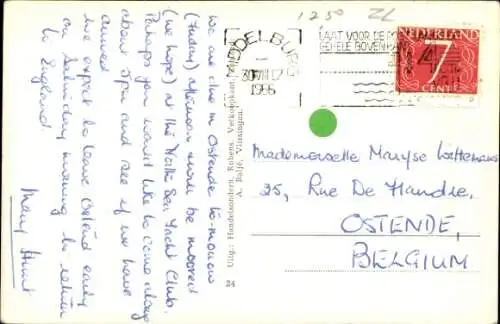 1250 ZL
MIDDELBURG
1956
LAAT VOOR DE
GEHELE BOVEN
NEDERLAND
7
CENT
We are due in Ostende to-morrow
(Friday) afternoon and will be moored
(we hope) at the North Sea Yacht Club.
Perhaps you would like to come along
about 5pm and see if we have
arrived.
We expect to leave Ostend early
on Saturday morning to return
to England
Mary Hunt
Uitg.: Handelsondern. Robema, Vierkoppelkant
A. Vlissingen.
24
Mademoiselle Maryse
25, Rue De Flandre,
OSTENDE,
BELGIUM